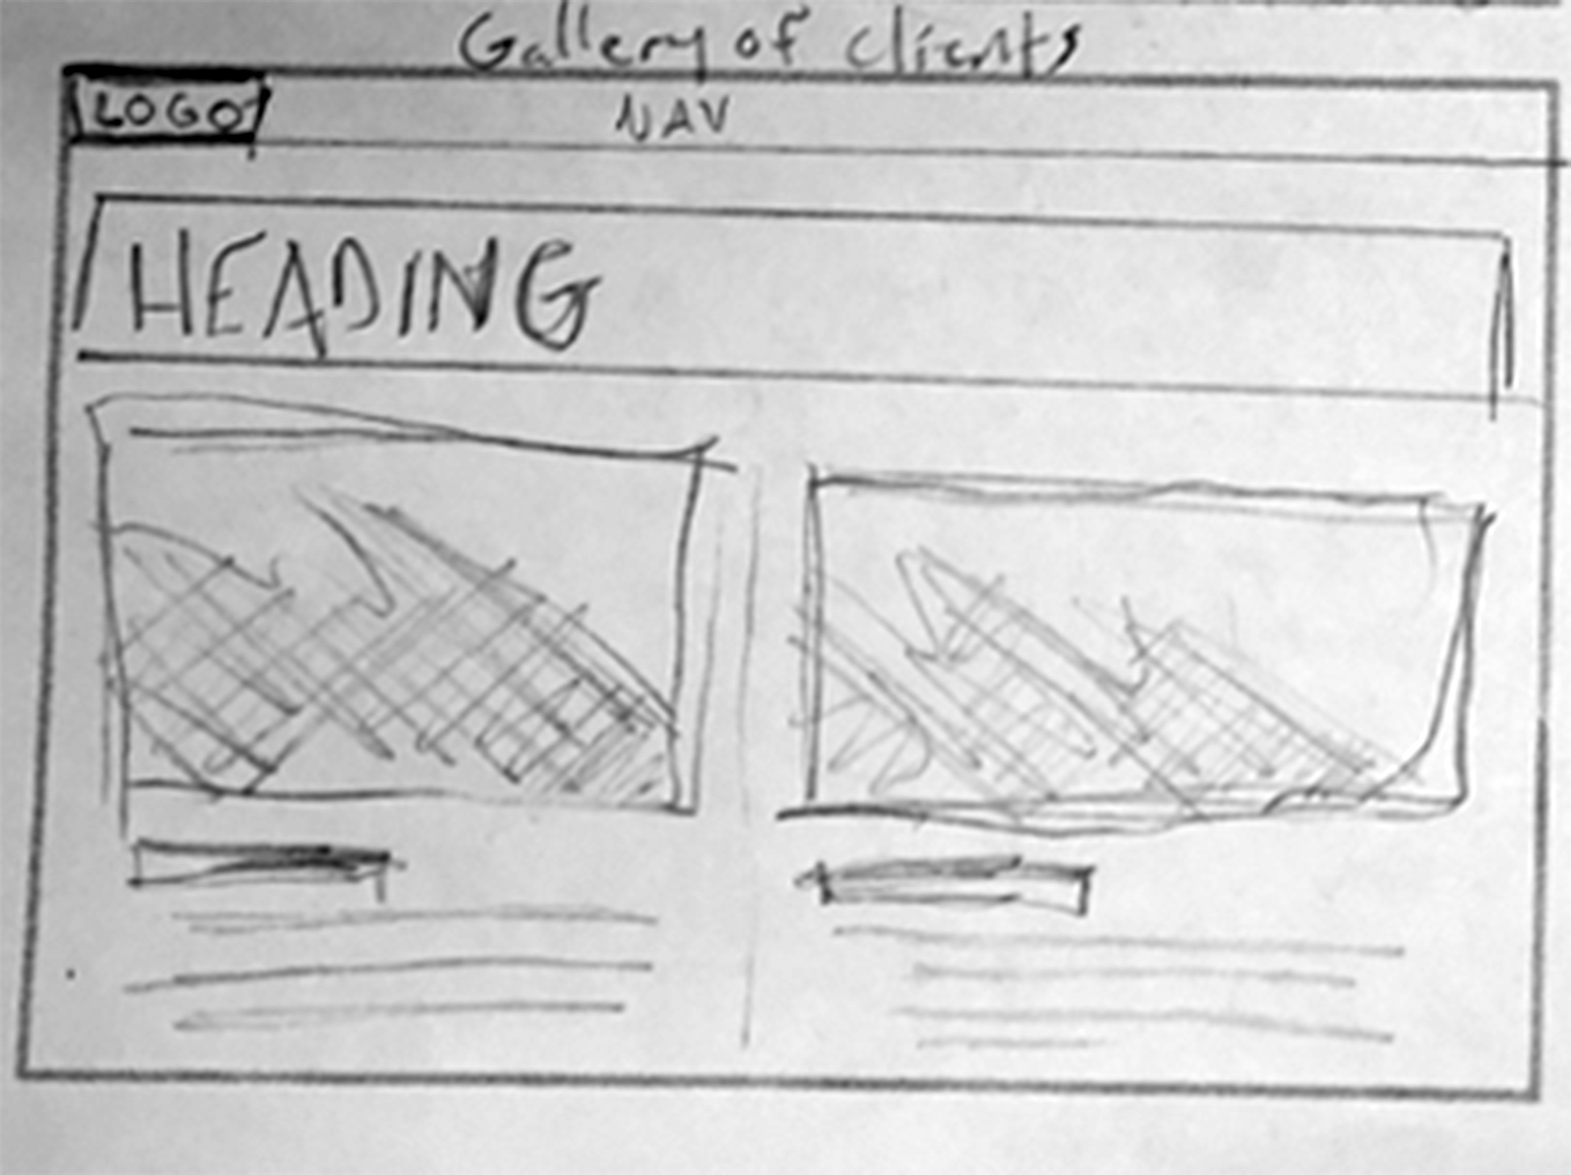 Gallery of clients
LOGO
NAV
HEADING